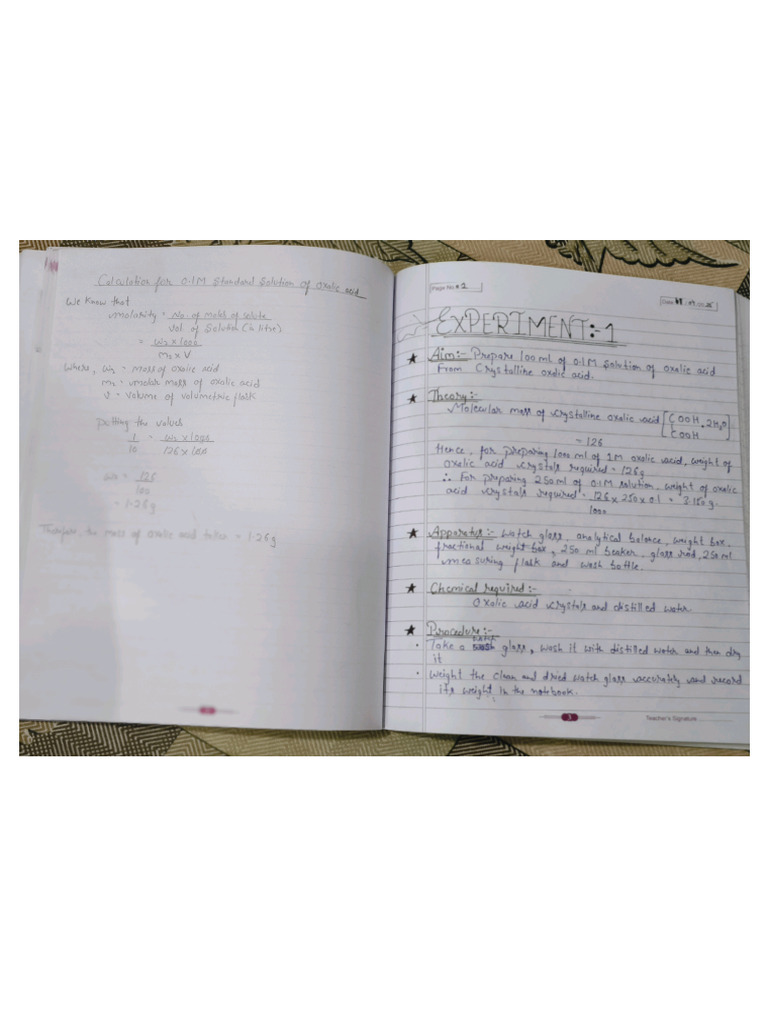 Calculation for 0.1M Standard Solution of oxalic acid
We know that
molarity = No. of moles of solute
Vol of Solution (in litre)
= w2 x 1000
m2 x V
Where, w2 = mass of oxalic acid
m2 = molar mass of oxalic acid
V = volume of volumetric flask
putting the values
1 = w2 x 1000
10 126 x 100
w2 = 126
100
= 1.26g
Therefore, the mass of oxalic acid taken = 1.26g
Page No. 2
Date
EXPERIMENT:1
★ Aim:- Prepare 100 ml of 0.1M Solution of oxalic acid
From Crystalline oxalic acid.
★ Theory:-
Molecular mass of crystalline oxalic acid [COOH . 2H2O]
COOH
= 126
Hence, for preparing 1000 ml of 1M oxalic acid, weight of
oxalic acid crystals required = 126g
∴ For preparing 250 ml of 0.1M solution, weight of oxalic
acid crystals required = 126 x 250 x 0.1 = 3.150 g.
1000
★ Apparatus:- watch glass, analytical balance, weight box,
fractional weight box, 250 ml beaker, glass rod, 250 ml
measuring flask and wash bottle.
★ Chemical required:-
Oxalic acid crystals and distilled water.
★ Procedure:-
water
• Take a glass, wash it with distilled water and then dry
it
• Weight the clean and dried watch glass accurately and record
its weight in the notebook.
3
Teacher's Signature